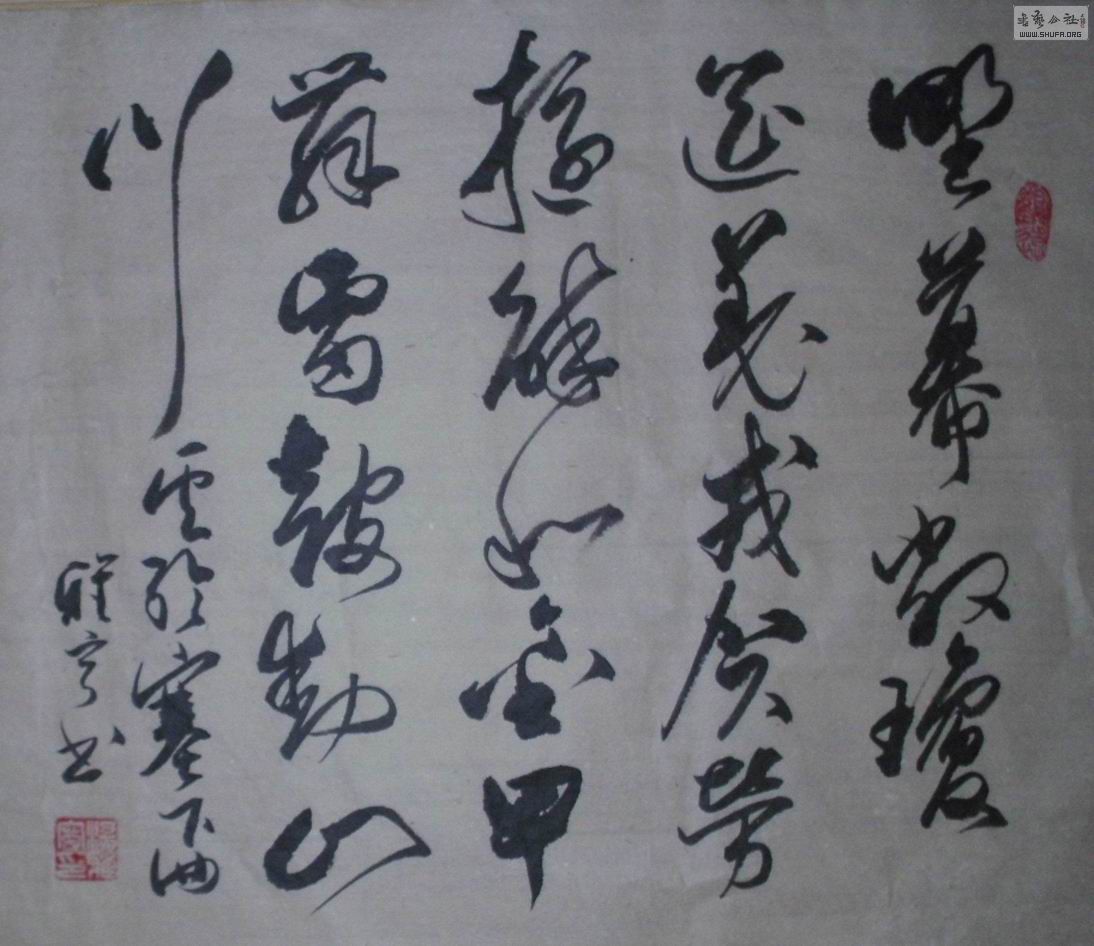 野幕敞瓊
筵羌戎贺劳
旋醉和金甲
舞雷鼓動山
川
纶塞下曲
书
書藝公社
WWW.SHUFA.ORG